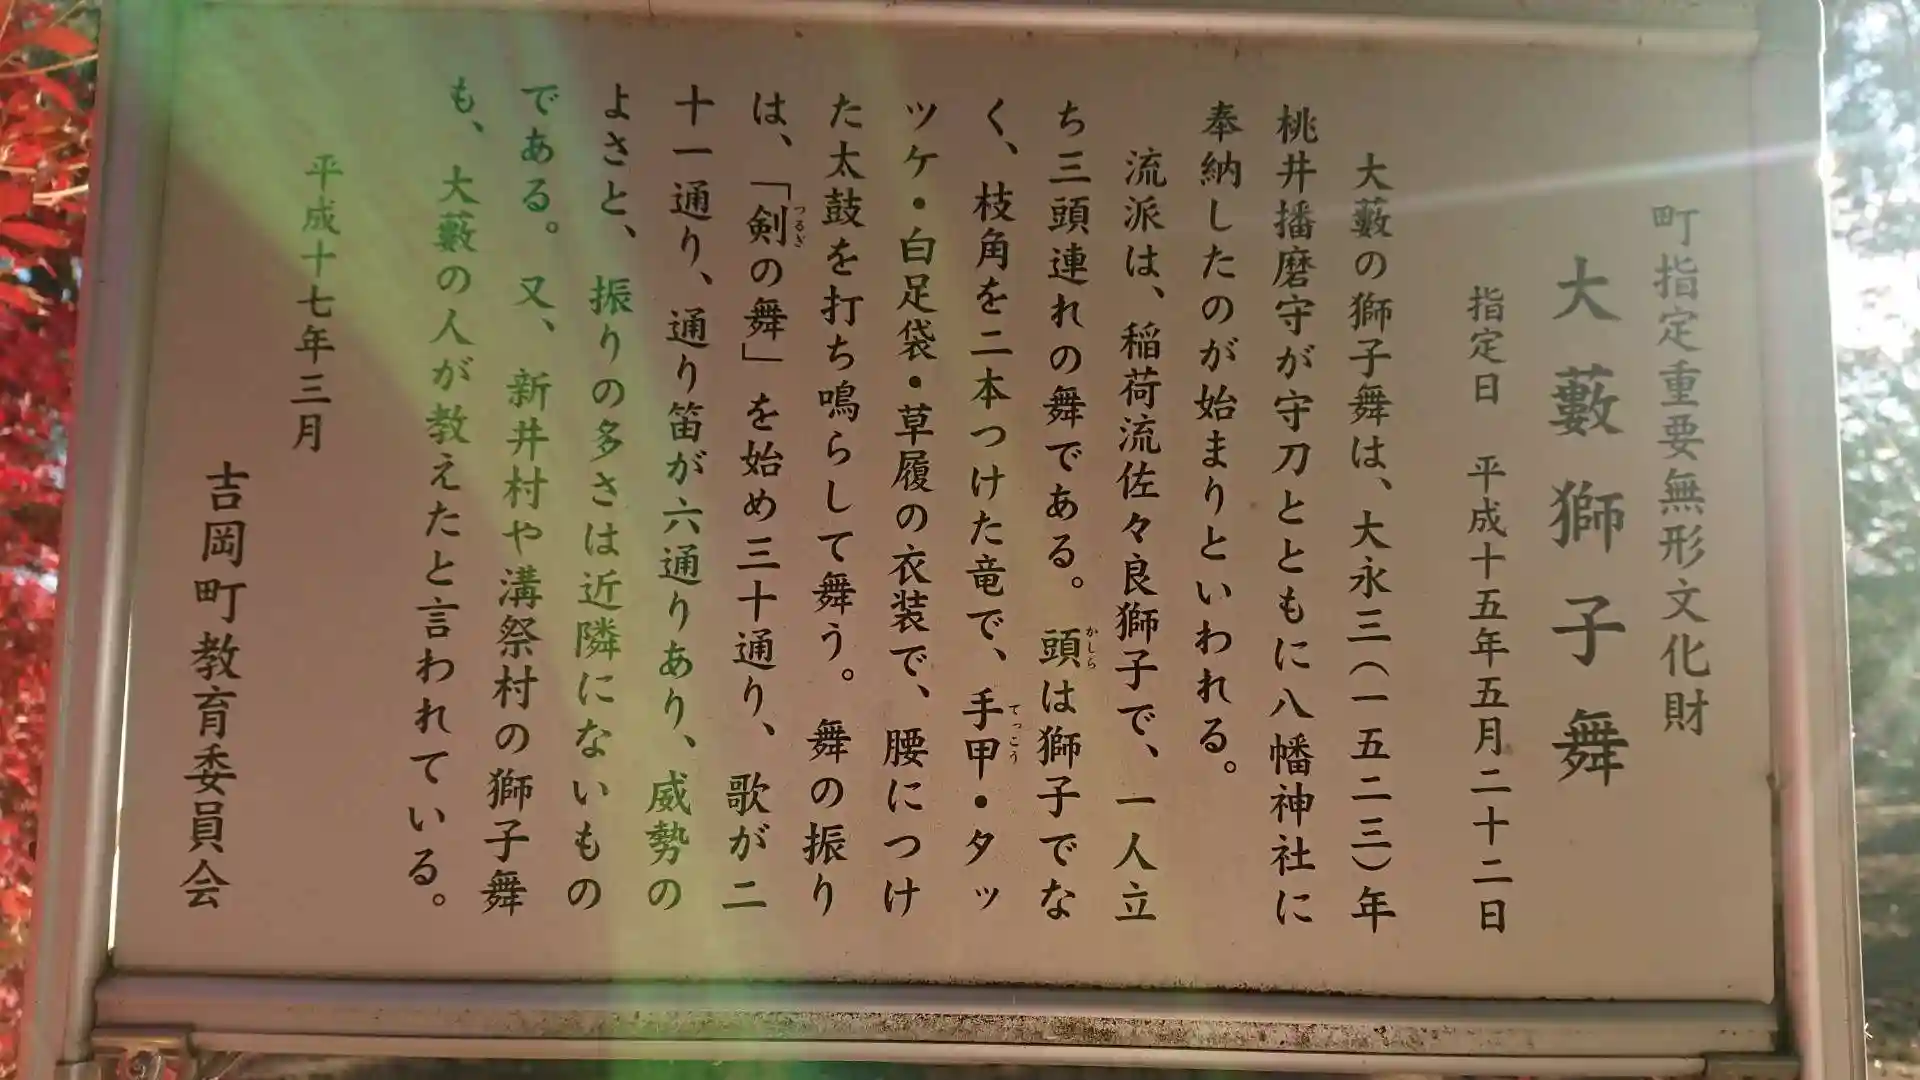 町指定重要無形文化財
大藪獅子舞
指定日 平成十五年五月二十二日
大藪の獅子舞は、大永三(一五二三)年
桃井播磨守が守刀とともに八幡神社に
奉納したのが始まりといわれる。
流派は、稲荷流佐々良獅子で、一人立
ち三頭連れの舞である。頭は獅子でな
かしら
く、枝角を二本つけた竜で、手甲・タッ
てっこう
ツケ・白足袋・草履の衣装で、腰につけ
た太鼓を打ち鳴らして舞う。舞の振り
は、「剣の舞」を始め三十通り、歌が二
つるぎ
十一通り、通り笛が六通りあり、威勢の
よさと、振りの多さは近隣にないもの
である。又、新井村や溝祭村の獅子舞
も、大藪の人が教えたと言われている。
平成十七年三月
吉岡町教育委員会